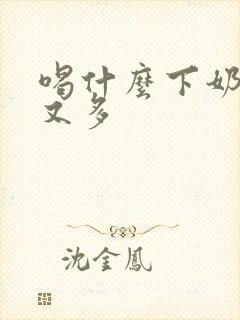 喝什麼下奶
又多
沈金鳳